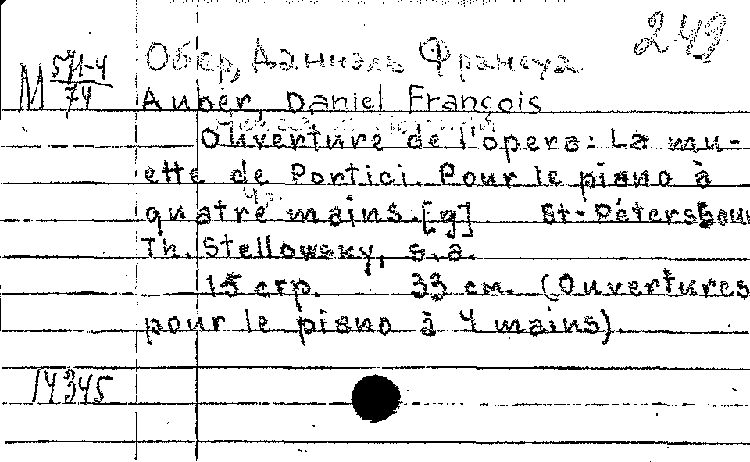 249
M 571-4/74
Обер, Даниэль Франсуа
Auber, Daniel François
Ouverture de l'opera: La mu-
ette de Portici. Pour le piano à
quatre mains. [g] St-Petersbour
Th. Stellowsky, s.a.
15 стр. 33 см. (Ouvertures
pour le piano à 4 mains).
14345